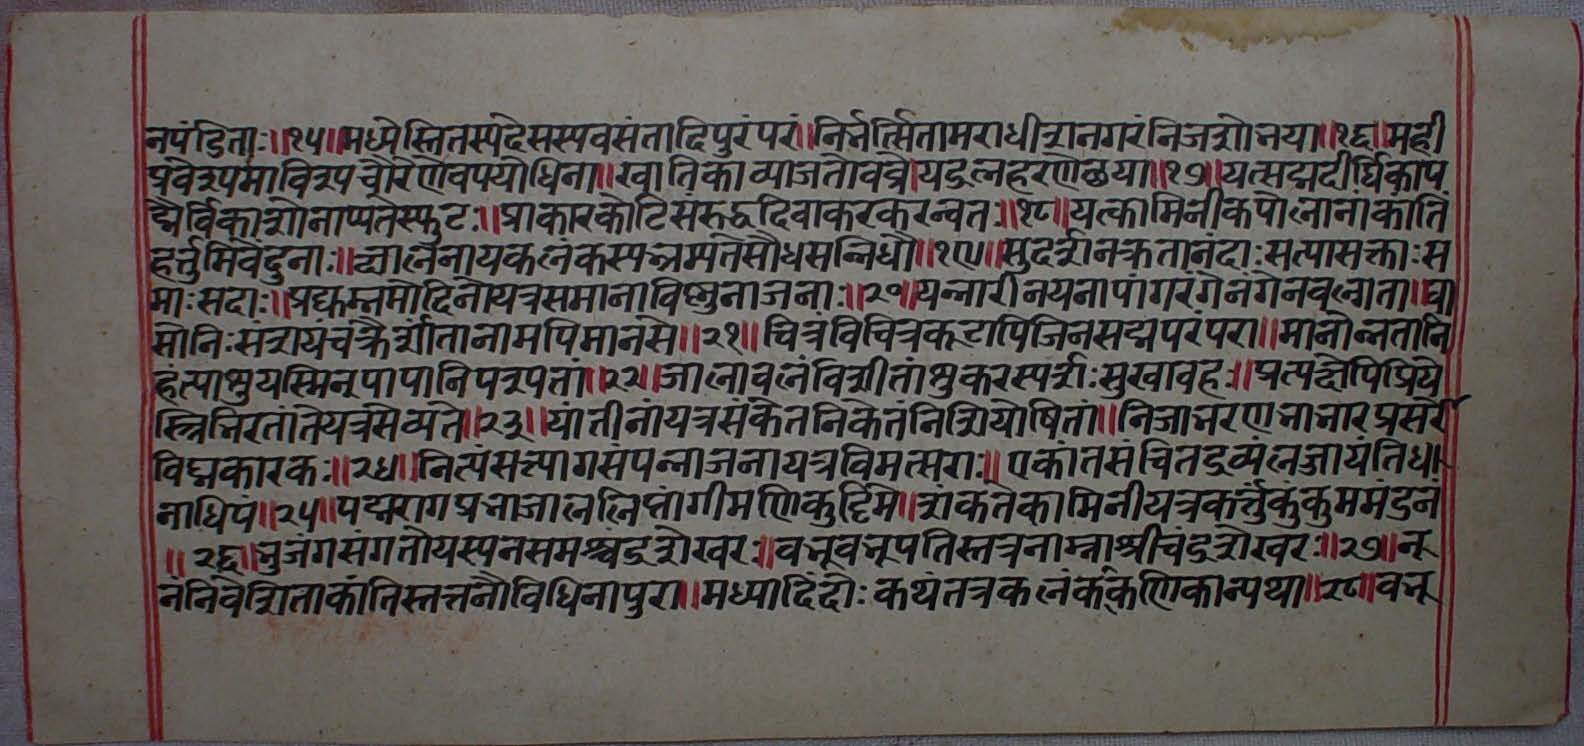 नपंडिताः॥१५॥मध्येस्तितस्यदेसस्यवसंतादिपुरंपरं॥निर्भर्त्सितामराधीशनगरंनिजशोभया॥१६॥मही
प्रवेशमाविश्य चौरेणेवपयोधिना॥खातिकाव्याजतोवव्रेयद्रत्नहरणेछया॥१७॥यत्सद्मदीर्घिकाप
द्मैर्विकाशोनाप्यतेस्फुटः॥प्राकारकोटिसंरुद्धदिवाकरकरन्वतः॥१८॥यत्कामिनीकपोलानांकांतिं
हर्त्तुमिवेंदुना॥व्यालेनायकलंकस्यभ्रम्यतेसौधसन्निधौ॥१९॥सुदर्शनकृतानंदाः सत्यासक्ताः स
माः सदाः॥प्रद्युम्नमोदिनोयत्रसमानाविष्णुनाजनाः॥२०॥यन्नारीनयनापांगरंगेनंगेनवल्गता॥घा
सोनिः संशयंचक्रेर्शांतानामपिमानसे॥२१॥चित्रंविचित्रकूटापिजिनसद्मपरंपरा॥मानोन्नतानि
हंत्याशुयस्मिन्पापानिपश्यतां॥२२॥जालावलंविशीतांशुकरस्पर्शः सुखावहः॥प्रत्यक्षेपिप्रिये
स्त्रिभिरतांतेयत्रसेव्यते॥२३॥यांतीनांयत्रसंकेतनिकेतंनिशियोषितां॥निजाभरणभाभारप्रसरो
विघ्नकारकः॥२४॥नित्यंसत्त्यागसंपन्नाजनायत्रविमत्सराः॥एकांतसंचितद्रव्यंलज्जयंतिधा
नाधिपं॥२५॥पद्मरागप्रभाजाललिप्तांगीमणिकुट्टिमे॥शंकतेकामिनीयत्रकर्त्तुंकुंकुममंडनं
॥२६॥भुजंगसंगतोयस्यनसमश्चंद्रशेखरः॥वभूवभूपतिस्तत्रनाम्नाश्रीचंद्रशेखरः॥२७॥नू
नंनिवेशिताकांतिस्तत्तनौविधिनापुरा॥मध्यादिंदोः कथंतत्रकलंककणिकान्यथा॥२८॥वभू